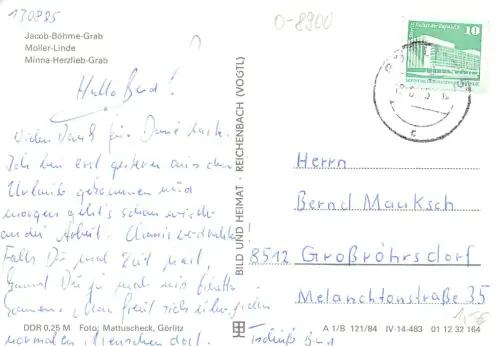 130885
0-8900
Jacob-Böhme-Grab
Moller-Linde
Minna-Herzlieb-Grab
10
Hallo Bernd!
Vielen Dank für Deine Karte.
Ich bin erst gestern aus dem
Urlaub gekommen und
morgen geht's schon wieder
an die Arbeit.
Falls Du mal Zeit hast,
kannst Du ja mal
Man freut sich über jeden
normalen Menschen dort.
Tschüß
BILD UND HEIMAT · REICHENBACH (VOGTL)
Herrn
Bernd Mauksch
8512 Großröhrsdorf
Melanchtonstraße 35
DDR 0,25 M Foto: Mattuscheck, Görlitz
A 1/B 121/84 IV-14-483 01 12 32 164